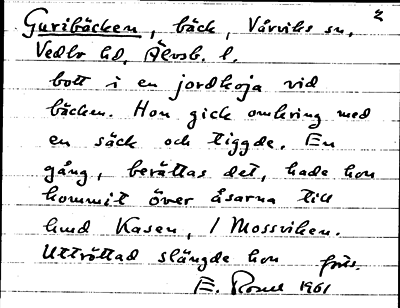 2
Guribäcken, bäck, Vårviks sn,
Vedbo hd, Älvsb. l.
bott i en jordkoja vid
bäcken. Hon gick omkring med
en säck och tiggde. En
gång, berättas det, hade hon
kommit över åsarna till
hmd Kasen, i Mossviken.
Uttröttad slängde hon forts.
E. 1961